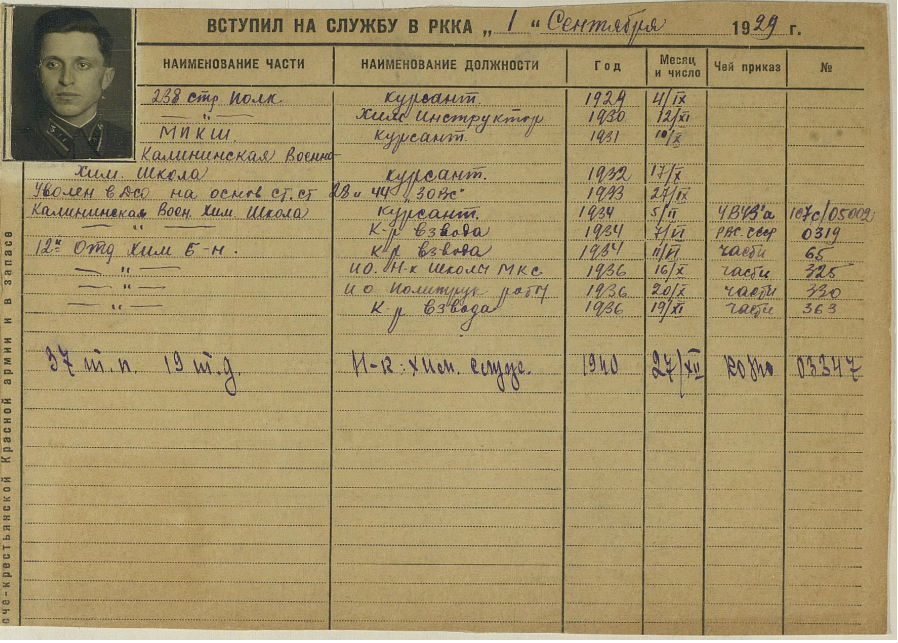 ВСТУПИЛ НА СЛУЖБУ В РККА „ 1 “ Сентября 1929 г.
НАИМЕНОВАНИЕ ЧАСТИ НАИМЕНОВАНИЕ ДОЛЖНОСТИ Год Месяц и число Чей приказ №
238 стр полк. курсант. 1929 4/IX
— „ — Химс Инструктор 1930 12/XI
МПКШ курсант. 1931 10/X
Калининская Военно-
Хим. Школа курсант. 1932 17/X
Уволен в ДСО на основ ст. ст 28 и 44 „ЗОВС“ 1933 27/IX
Калининская Воен. Хим. Школа курсант. 1934 5/II УВУЗ'а 167с/05002
— „ — К-р взвода 1934 7/VI РВС СССР 0319
12й Отд Хим Б-н. К-р взвода 1934 11/VI части 65
— „ — И О. Н-к школы МКС 1936 16/X части 325
— „ — И О политрук роты 1936 20/X части 330
— „ — К-р взвода 1936 19/XI части 363
37 т.п. 19 т.д. Н-к: хим. служ. 1940 27/XII 03347
сче-крестьянской Красной армии и в запасе